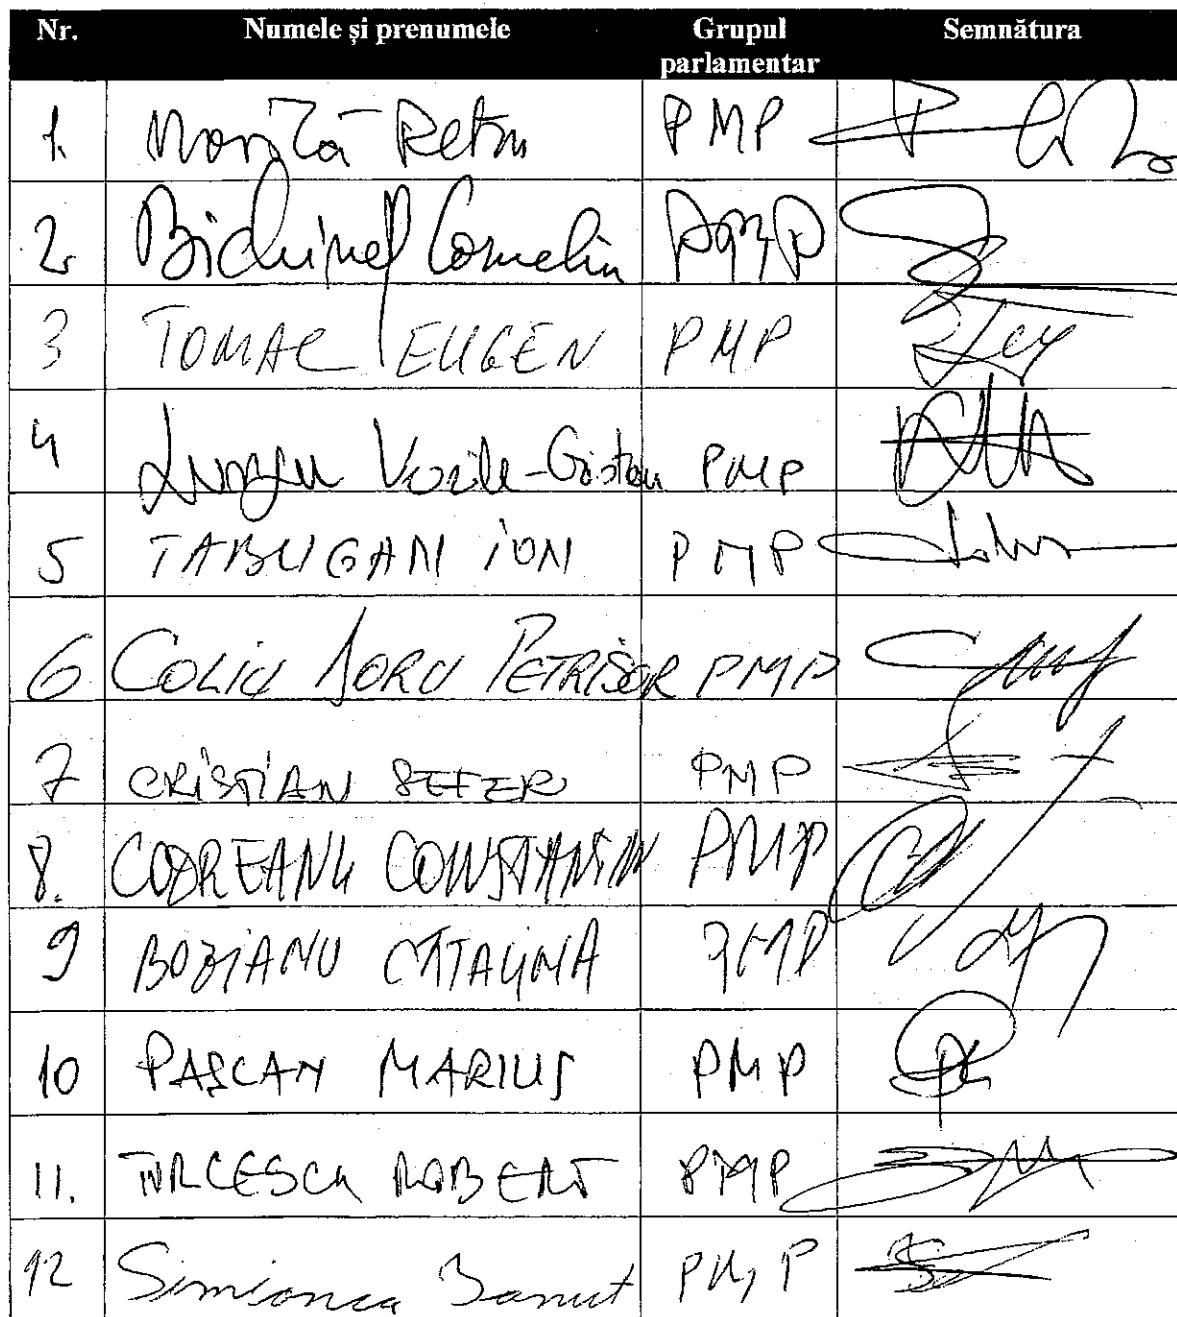 Nr. Numele și prenumele Grupul parlamentar Semnătura
1. Petru PMP
2. Bichineț Corneliu PMP
3 TOMAC EUGEN PMP
4 Lungu Vasile-Cristian PMP
5 TABUGAN ION PMP
6 COLIU DORU PETRIȘOR PMP
7 CRISTIAN SEFER PMP
8. CODREANU CONSTANTIN PMP
9 BOZIANU CATALINA PMP
10 PAȘCAN MARIUS PMP
11. TURCESCU ROBERT PMP
12 Simionca Ionuț PMP